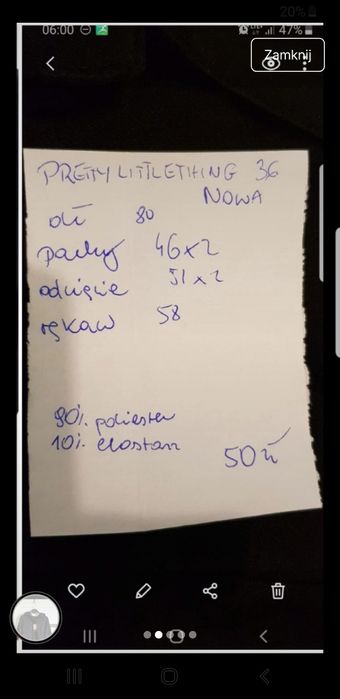 20%
06:00 47%
Zamknij
PRETTYLITTLETHING 36
NOWA
dł 80
pachy 46x2
odcięcie 51x2
rękaw 58
90% poliester
10% elastan
50zł